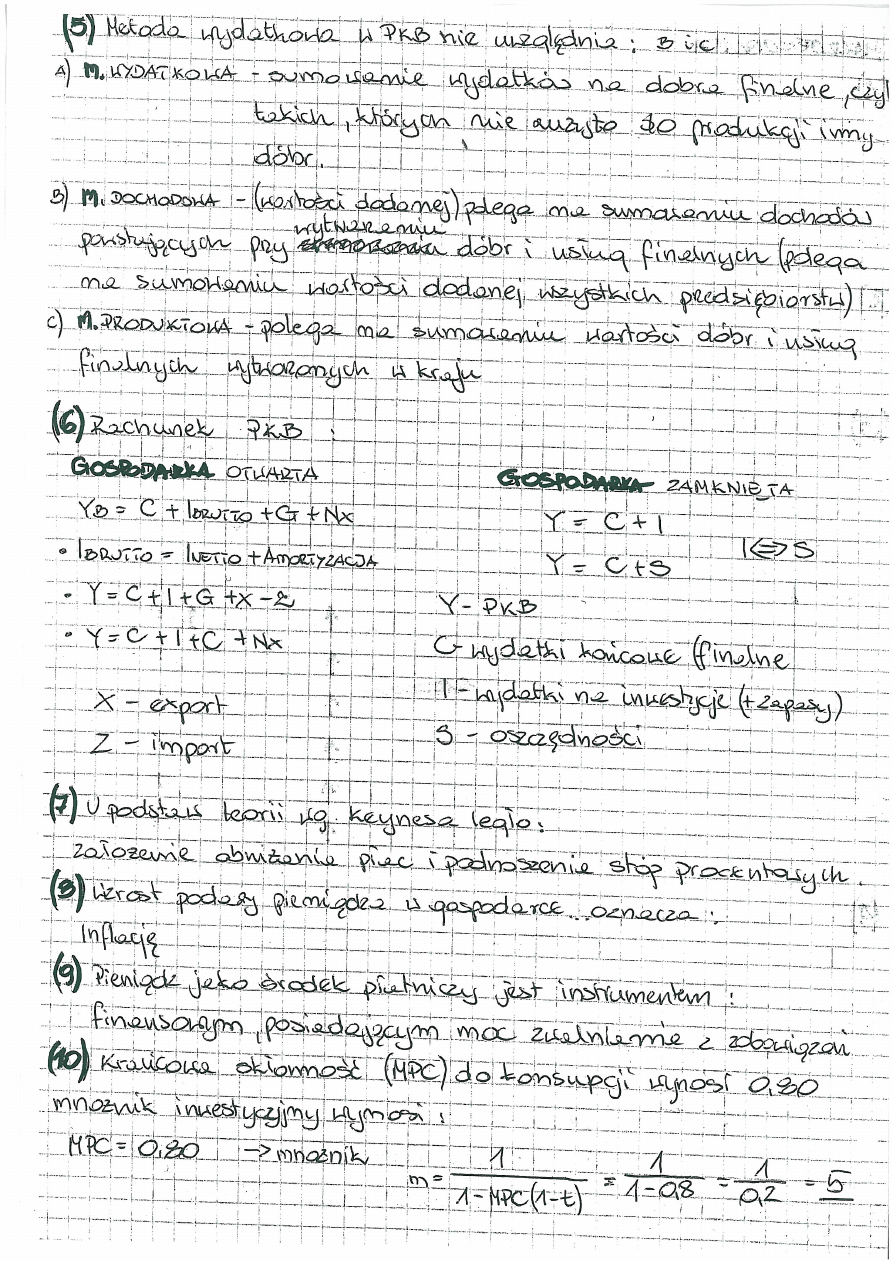 (5) Metoda wydatkowa w PKB nie uwzględnia: B i C.
A) M. WYDATKOWA - sumowanie wydatków na dobra finalne, czyl
takich, których nie zużyto do produkcji inny
dóbr.
B) M. DOCHODOWA - (wartości dodanej) polega na sumowaniu dochodów
wytwarzaniu
powstających przy dóbr i usług finalnych (polega
na sumowaniu wartości dodanej wszystkich predsiębiorstw)
C) M. PRODUKTOWA - polega na sumowaniu wartości dóbr i usług
finalnych wytworzonych w kraju
(6) Rachunek PKB :
GOSPODARKA OTWARTA
YB = C + IBRUTTO + G + Nx
• IBRUTTO = INETTO + AMORTYZACJA
• Y = C + I + G + X - Z
• Y = C + I + C + Nx
X - export
Z - import
GOSPODARKA ZAMKNIĘTA
Y = C + I
I <=> S
Y = C + S
Y - PKB
C - wydatki końcowe (finalne
I - wydatki na inwestycje (+zapasy)
S - oszczędności
(7) U podstaw teorii wg. Keynesa legło:
założenie obniżenie płac i podnoszenie stóp procentowych.
(8) Wzrost podaży pieniądza w gospodarce oznacza:
Inflację
(9) Pieniądz jako środek płatniczy jest instrumentem :
finansowym, posiadającym moc zwalniania z zobowiązań
(10) Krańcowa skłonność (MPC) do konsupcji wynosi 0,80
mnożnik inwestycyjny wynosi :
MPC = 0,80 -> mnożnik m = 1/(1-MPC(1-t)) = 1/(1-0,8) = 1/0,2 = 5